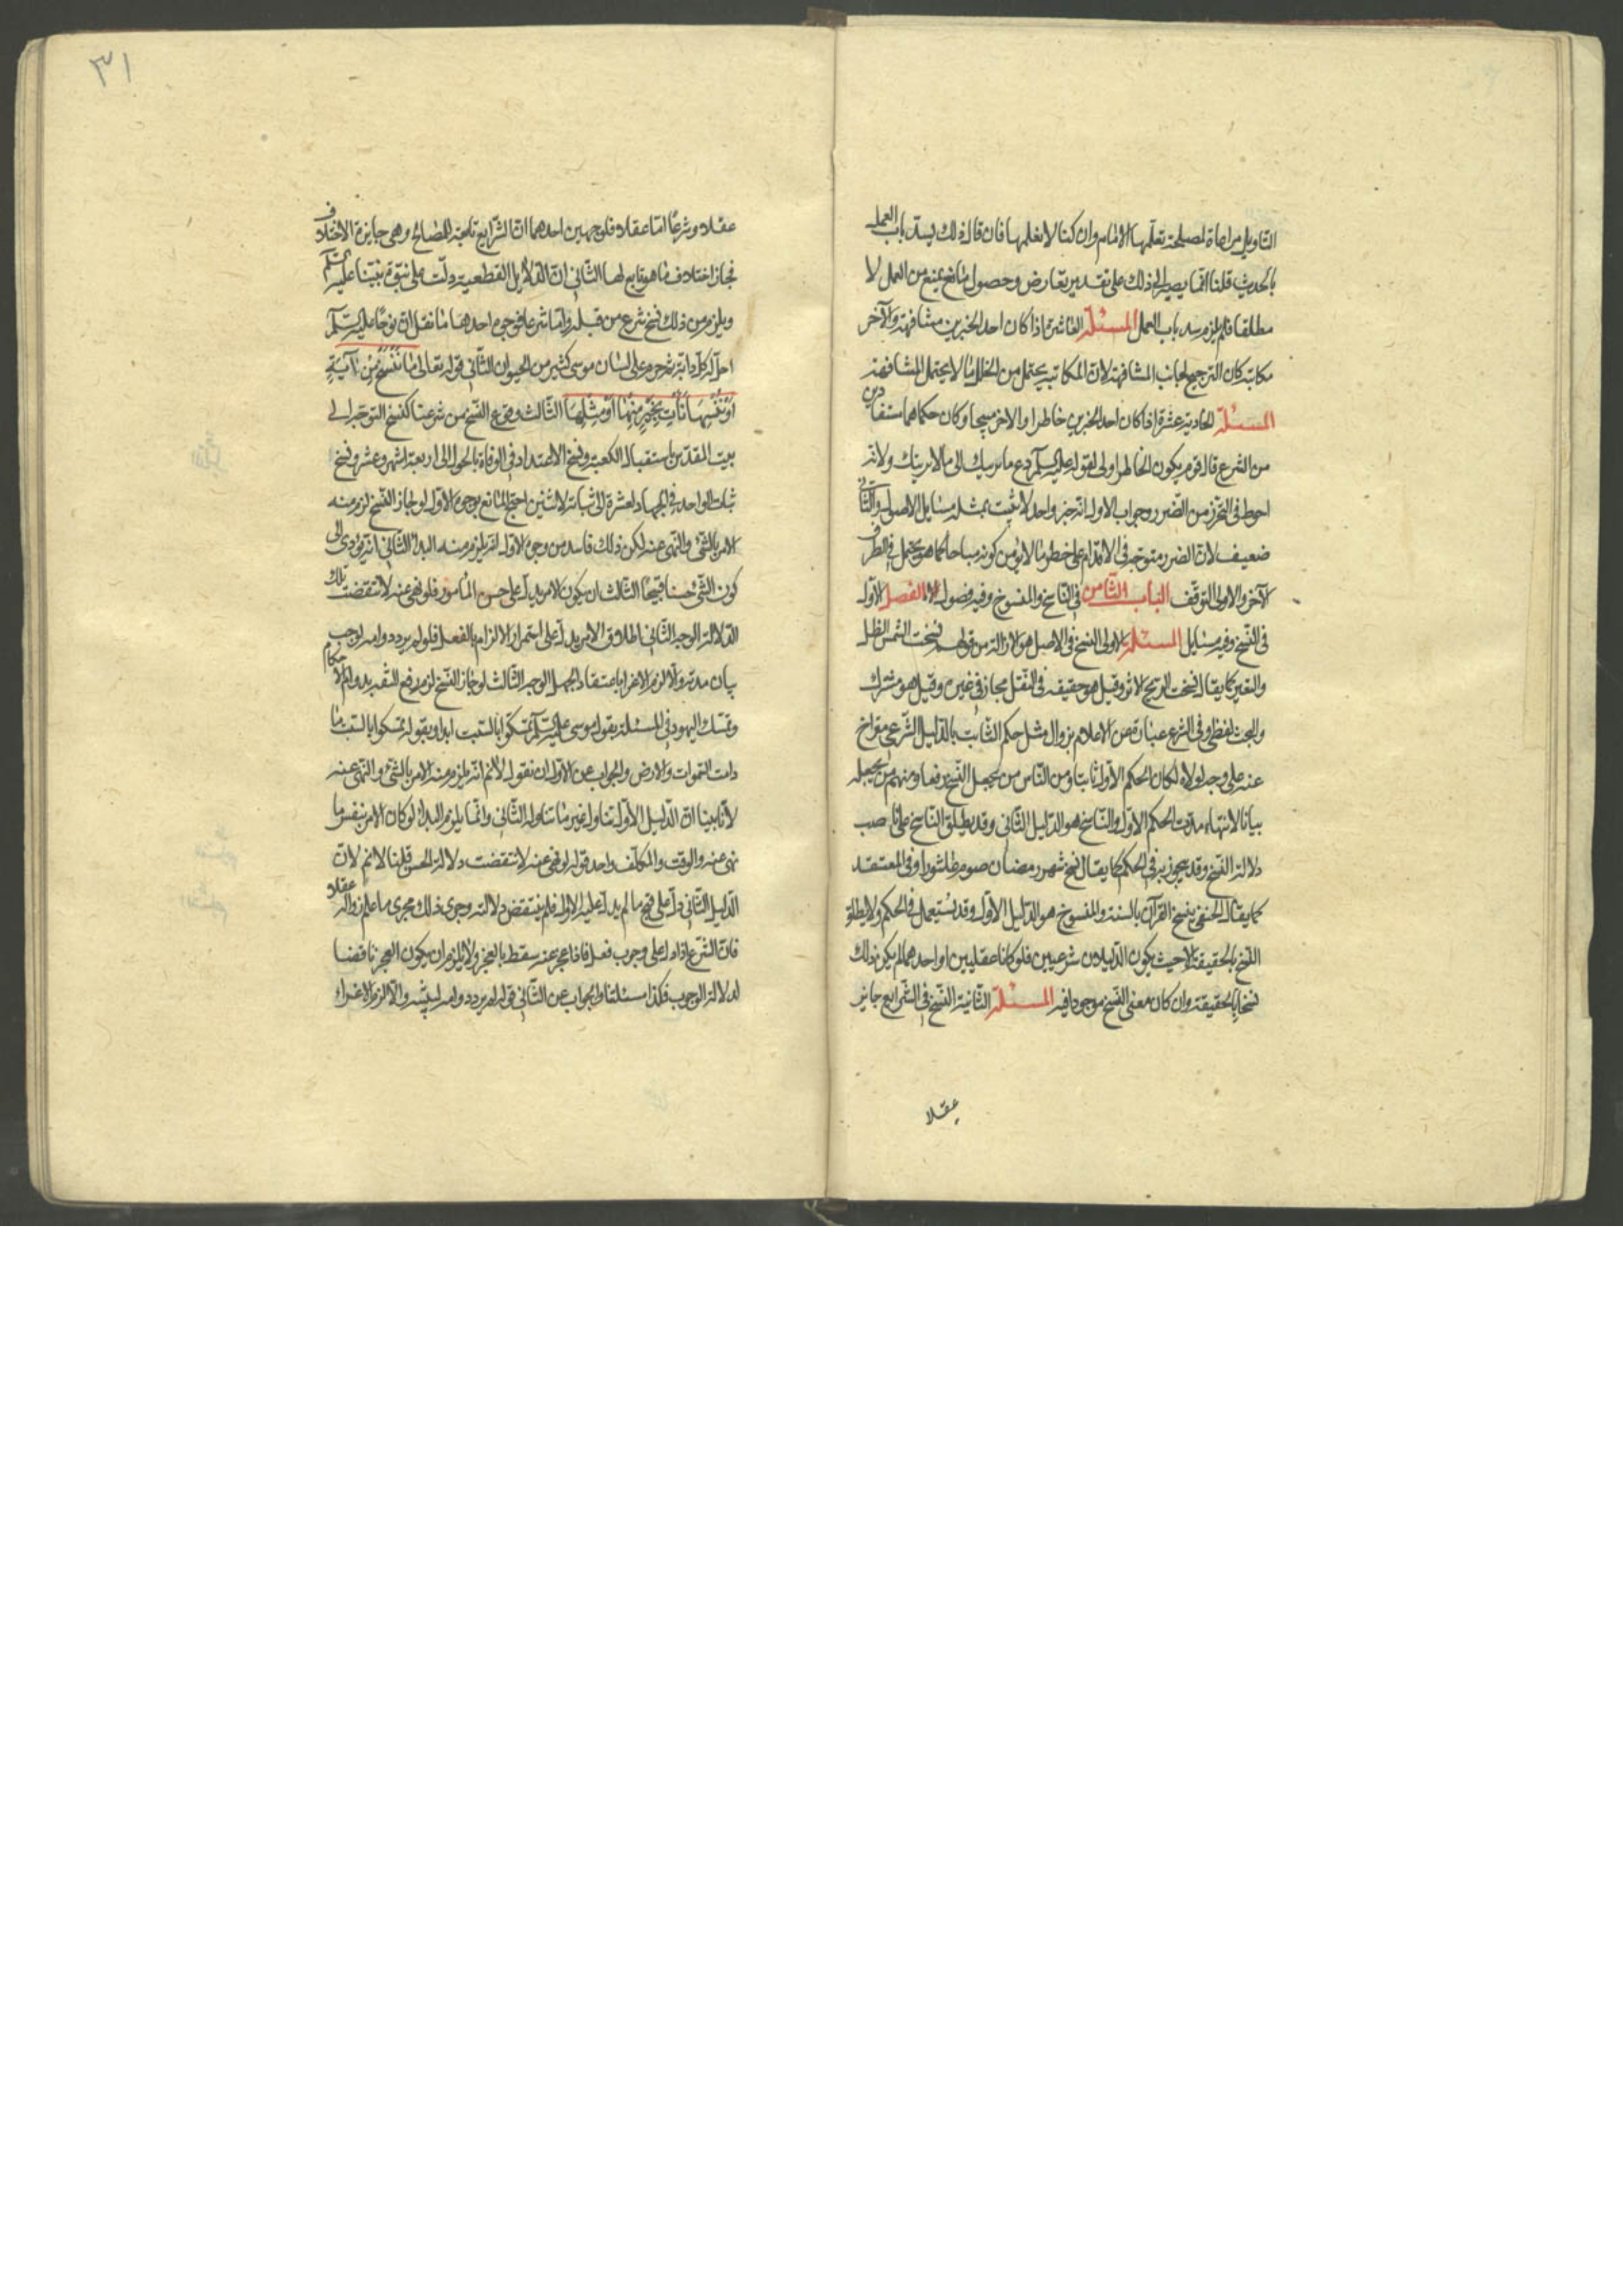 التاويل مراعاة لمصلحة تعلمها الامام وان كنا لا نعلمها فان قال ذلك يسد باب العمل
بالحديث قلنا انما يصير الى ذلك على تقدير تعارض وحصول مانع يمنع من العمل لا
مطلقا فلم يلزم سد باب العمل المسئلة العاشرة اذا كان احد الخبرين مشافهة والآخر
مكاتبة كان الترجيح لجانب المشافهة لان المكاتبة يحتمل من الخلل ما لا يحتمل المشافهة
المسئلة الحادية عشرة اذا كان احد الخبرين خاطرا والاخر مبيحا وكان حكماهما مستفادين
من الشرع قال قوم يكون الخاطر اولى لقوله عليه السلم دع ما يريبك الى ما لا يريبك ولانه
احوط فى التحرز من الضرر وجواب الاول انه خبر واحد لا يثبت بمثله مسايل الاصول والثانى
ضعيف لان الضرر متوجه فى الاقدام على خطر ما لا يؤمن كونه مباحا كما هو يحتمل فى الطرف
الآخر والاولى التوقف الباب الثامن فى الناسخ والمنسوخ وفيه فصول الفصل الاول
فى النسخ وفيه مسايل المسئلة الاولى النسخ فى الاصل هو الازالة من قولهم نسخت الشمس الظل
والتغير كما يقال نسخت الريح الاثر وقيل هو حقيقة فى النقل مجاز فى غيره وقيل هو مشترك
والبحث لفظى وفى الشرع عبارة عن الاعلام بزوال مثل حكم الثابت بالدليل الشرعى متراخ
عنه على وجه لولاه لكان الحكم الاول ثابتا ومن الناس من يجعل النسخ رفعا ومنهم من يجعله
بيانا لانتهاء مدة الحكم الاول والناسخ هو الدليل الثانى وقد يطلق الناسخ على ناصب
دلالة النسخ وقد يتجوز به فى الحكم كما يقال نسخ شهر رمضان صوم عاشورا وفى المعتقد
كما يقال الحنفى ينسخ القرآن بالسنة والمنسوخ هو الدليل الاول وقد يستعمل فى الحكم ولا يطلق
النسخ بالحقيقة الا حيث يكون الدليلان شرعيين فلو كانا عقليين او احدهما لم يكن ذلك
نسخا بالحقيقة وان كان معنى النسخ موجودا فيه المسئلة الثانية النسخ فى الشرايع جايز
عقلا
٣١
عقلا وشرعا اما عقلا فلوجهين احدهما ان الشرايع تابعة للمصالح وهى جايزة الاختلاف
فجاز اختلاف ما هو تابع لها الثانى ان الدلايل القطعية دلت على نبوة نبينا عليه السلم
ويلزم من ذلك نسخ شرع من قبله واما شرعا فوجوه احدها ما نقل ان نوحا عليه السلم
احل له كل دابة ثم حرم على لسان موسى كثير من الحيوان الثانى قوله تعالى ما ننسخ من آية
او ننسها نأت بخير منها او مثلها الثالث وقوع النسخ من شرعنا كنسخ التوجه الى
بيت المقدس باستقبال الكعبة ونسخ الاعتداد فى الوفاة بالحول الى اربعة اشهر وعشر ونسخ
ثبات الواحد فى الجهاد لعشرة الى ثباته لاثنين احتج المانع بوجوه الاول لو جاز النسخ لزم منه
الامر بالشئ والنهى عنه لكن ذلك فاسد من وجوه الاول انه يلزم منه البداء الثانى انه يؤدى الى
كون الشئ حسنا قبيحا الثالث ان يكون الامر يدل على حسن المامور فلو نهى عنه لانتقضت تلك
الدلالة الوجه الثانى اطلاق الامر يدل على استمرار الالزام بالفعل فلو لم يرد دوامه لوجب
بيان مدته والا لزم الاغراء باعتقاد الجهل الوجه الثالث لو جاز النسخ لزم رفع الثقة بدوام الاحكام
وتمسك اليهود فى المسئلة بقول موسى عليه السلم تمسكوا بالسبت ابدا وبقوله تمسكوا بالسبت ما
دامت السموات والارض والجواب عن الاول ان نقول لا نم انه يلزم منه الامر بالشئ والنهى عنه
لانا بينا ان الدليل الاول تناول غير ما تناوله الثانى وانما يلزم البداء لو كان الامر بنفس ما
نهى عنه والوقت والمكلف واحد قوله لو نهى عنه لانتقضت دلالة الحسن قلنا لا نم لان
الدليل الثانى دل على قبح ما لم يدل عليه الاول فلم ينتقض دلالته وجرى ذلك مجرى ما علم زواله عقلا
فان الشرع اذا دل على وجوب فعل فاذا عجز عنه سقط بالعجز ولا يلزم ان يكون العجز ناقضا
لدلالة الوجوب فكذا مسئلتنا والجواب عن الثانى قوله لو لم يرد دوامه لبينه والا لزم الاغراء